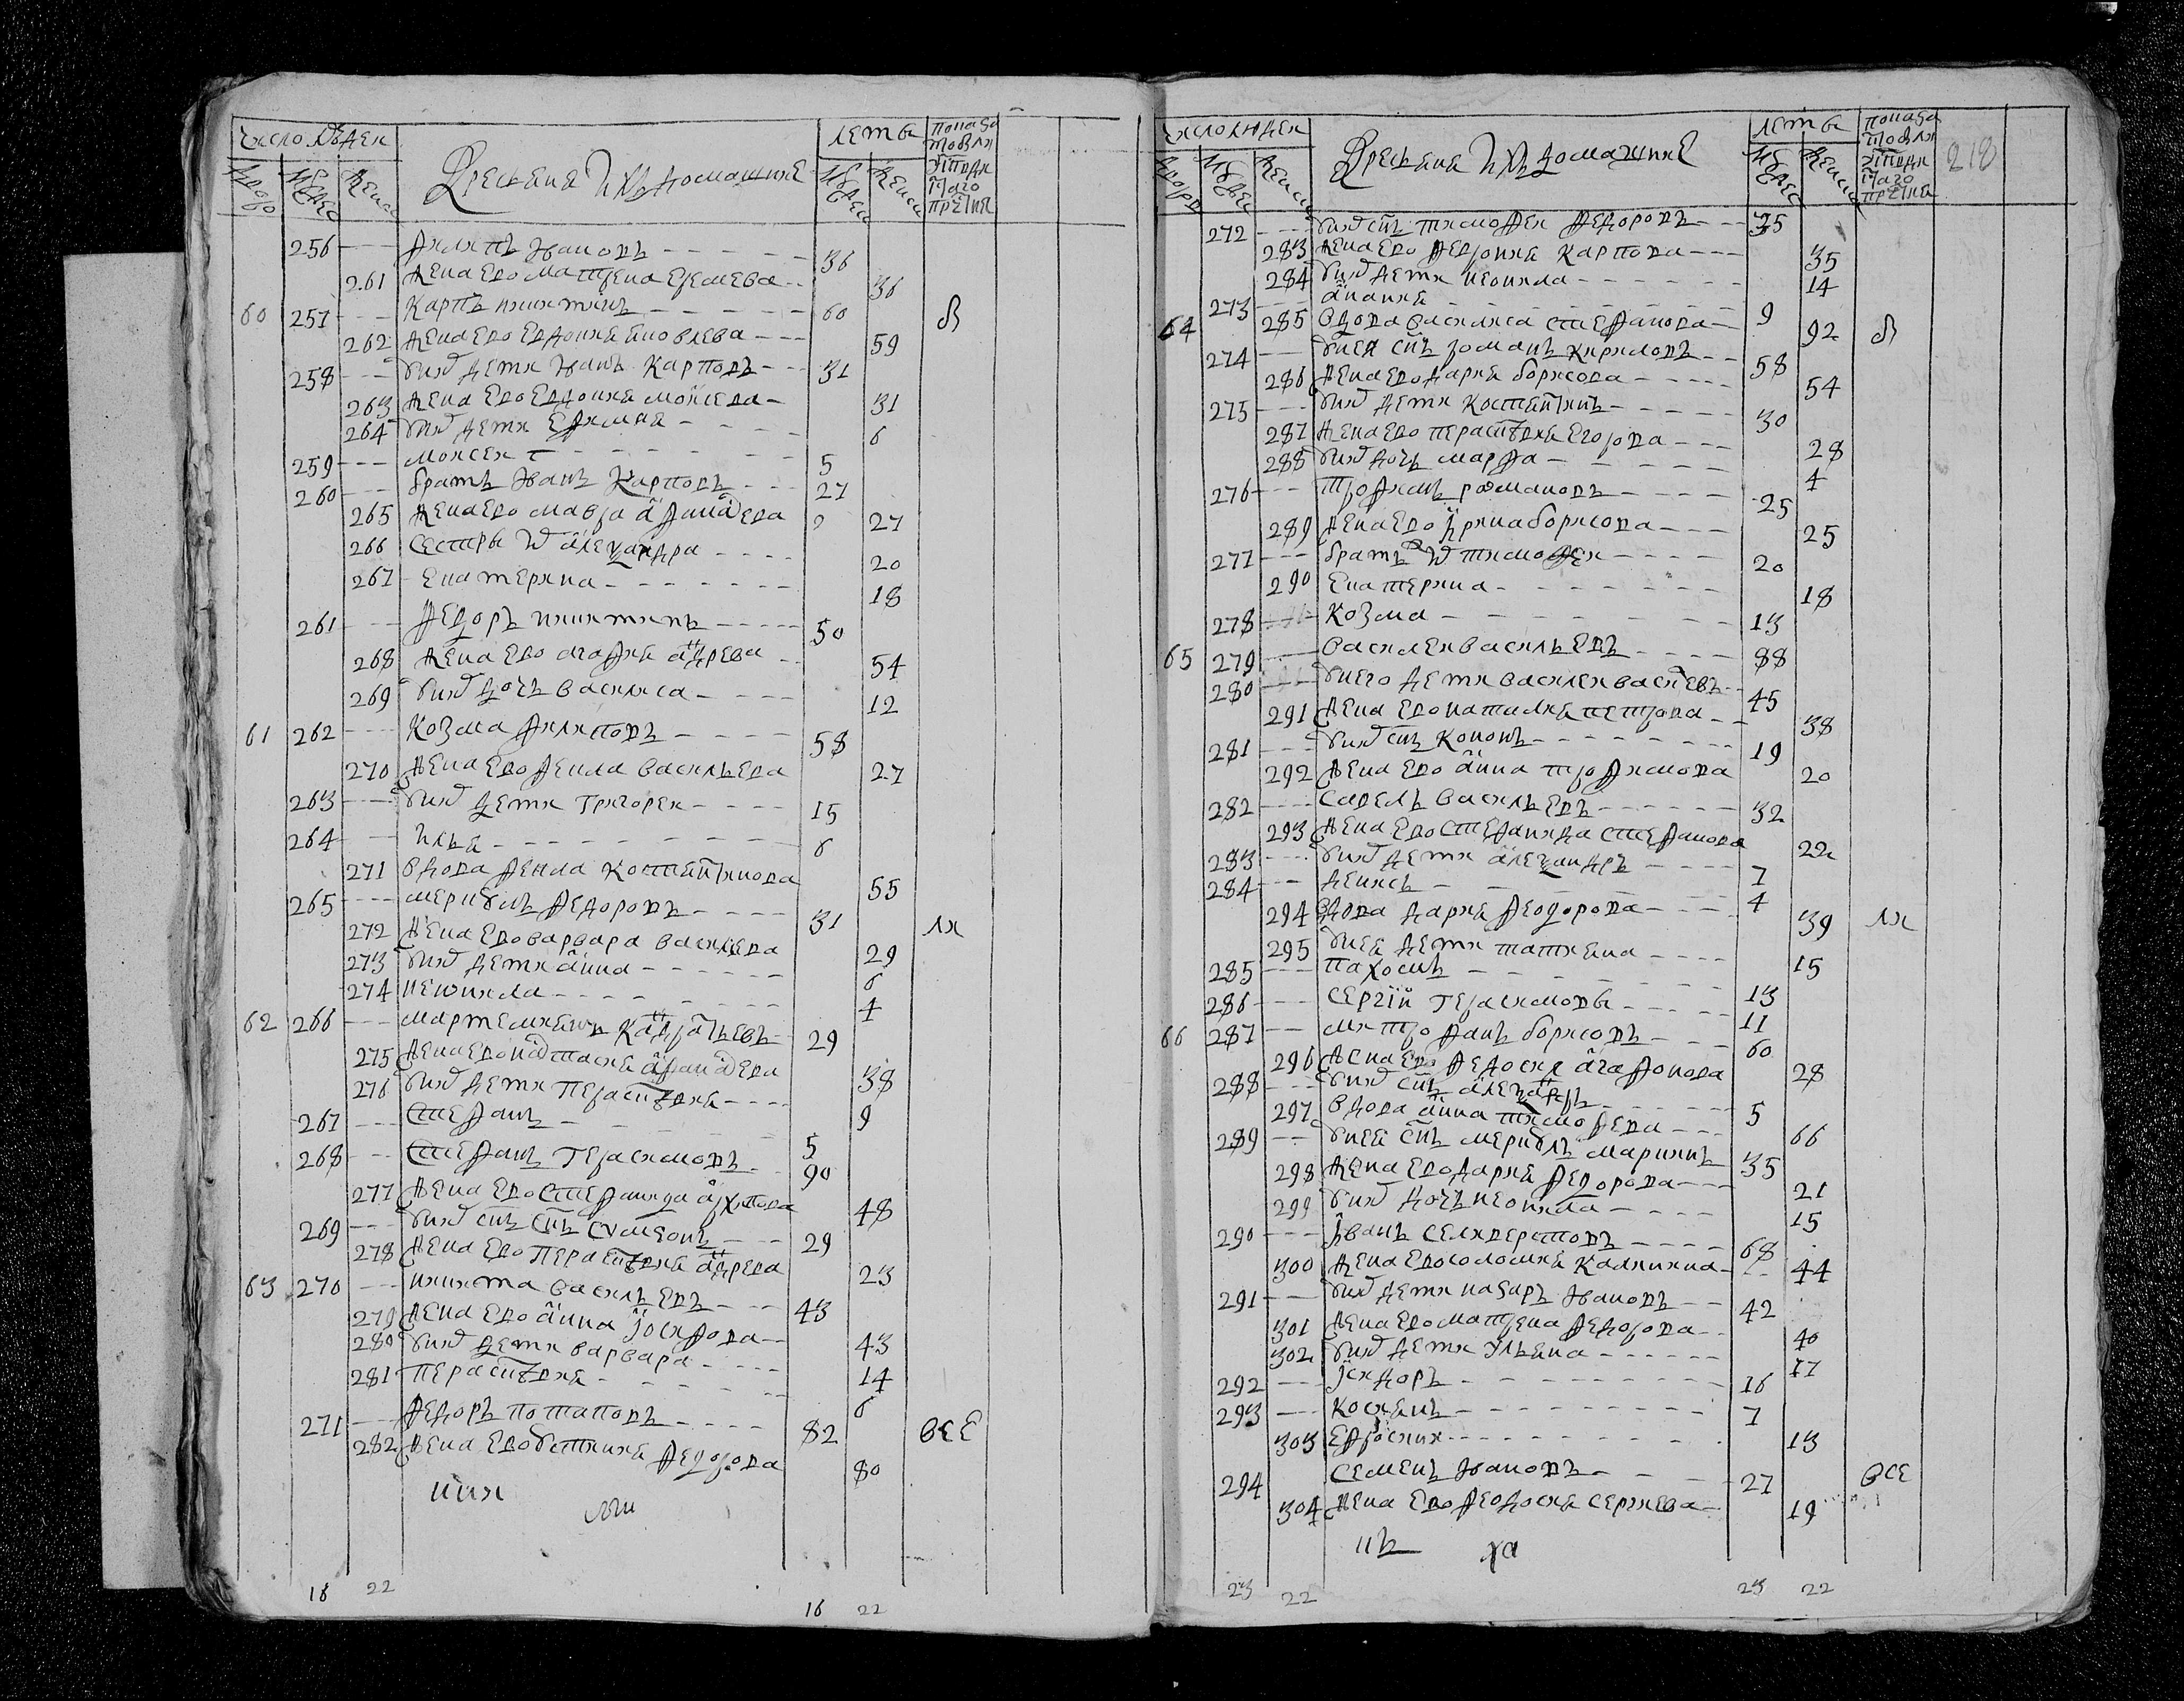 число людеи
двор
мужес
женск
Крестьяне и ихъ домашние
лета
мужес
женск
показа
256 Филипъ Ивановъ 36
261 жена ево матрена еремеева 36
60 257 Карпъ никитинъ 60 в
262 жена ево евдокия яковлева 59
258 у них дети Иванъ Карповъ 31
263 жена ево евдокия моисеева 31
264 у них дети ефимия 6
259 моисеи 5
260 братъ Иванъ Карповъ 27
265 жена ево мавра афанасева 27
266 сестры их александра 20
267 екатерина 18
261 Федоръ никитинъ 50
268 жена ево агафия андреева 54
269 у них дочь василиса 12
61 262 Козма филиповъ 58
270 жена ево фекла васильева 27
263 у них дети григореи 15
264 илья 6
271 вдова фекла костентинова 55
265 меркулъ федоровъ 31 ли
272 жена ево варвара василева 29
273 у них дети анна 6
274 неонила 4
62 266 мартемиянъ кондратьевъ 29
275 жена ево настасия афанасева 38
276 у них дети парасковия 9
267 стефанъ 5
268 стефанъ герасимовъ 90
277 жена ево стефанида архипова 48
269 у них снъ снъ симеонъ 29
278 жена ево парасковия андреева 23
63 270 никита васильевъ 43
279 жена ево анна иосифова 43
280 у них дети варвара 14
281 парасковия 6
271 федоръ потаповъ 82 все
282 жена ево устиния федорова 80
18 22 16 22
число людеи
двор
мужес
женск
Крестьяне и ихъ домашние
лета
мужес
женск
показа
218
272 у них снъ тимофеи федоровъ 35
283 жена ево федосия карпова 35
284 у них дети неонила 14
273 анания 9
64 285 вдова василиса стефанова 92 в
274 у нея снъ романъ кириловъ 58
286 жена ево дария борисова 54
275 у них дети костентинъ 30
287 жена ево парасковия егорова 28
288 у них дочь марфа 4
276 трофимъ романовъ 25
289 жена ево ирина борисова 25
277 братъ их тимофеи 20
290 екатерина 18
278 козма 13
65 279 василеи васильевъ 88
280 у него дети василеи василевъ 45
291 жена ево наталия петрова 38
281 у них снъ кононъ 19
292 жена ево анна трофимова 20
282 савелъ васильевъ 32
293 жена ево стефанида стефанова 22
283 у них дети александръ 7
284 денисъ 4
294 вдова дария феодорова 39 ли
295 у нея дети татияна 15
285 пахомъ 13
286 сергiй герасимовъ 11
66 287 митрофанъ борисовъ 60
296 жена ево федосия агафонова 28
288 у них снъ александръ 5
297 вдова анна тимофеева 66
289 у нея снъ меркулъ маркинъ 35
298 жена ево дария федорова 21
299 у них дочь неонила 15
290 Iванъ селиверстовъ 68
300 жена ево соломия калинина 44
291 у них дети назаръ Ивановъ 42
301 жена ево матрена федорова 40
302 у них дети ульяна 17
292 Iсидоръ 16
293 косянъ 7
303 ефросиния 13
294 семенъ Ивановъ 27 все
304 жена ево феодосия сергиева 19
23 22 23 22